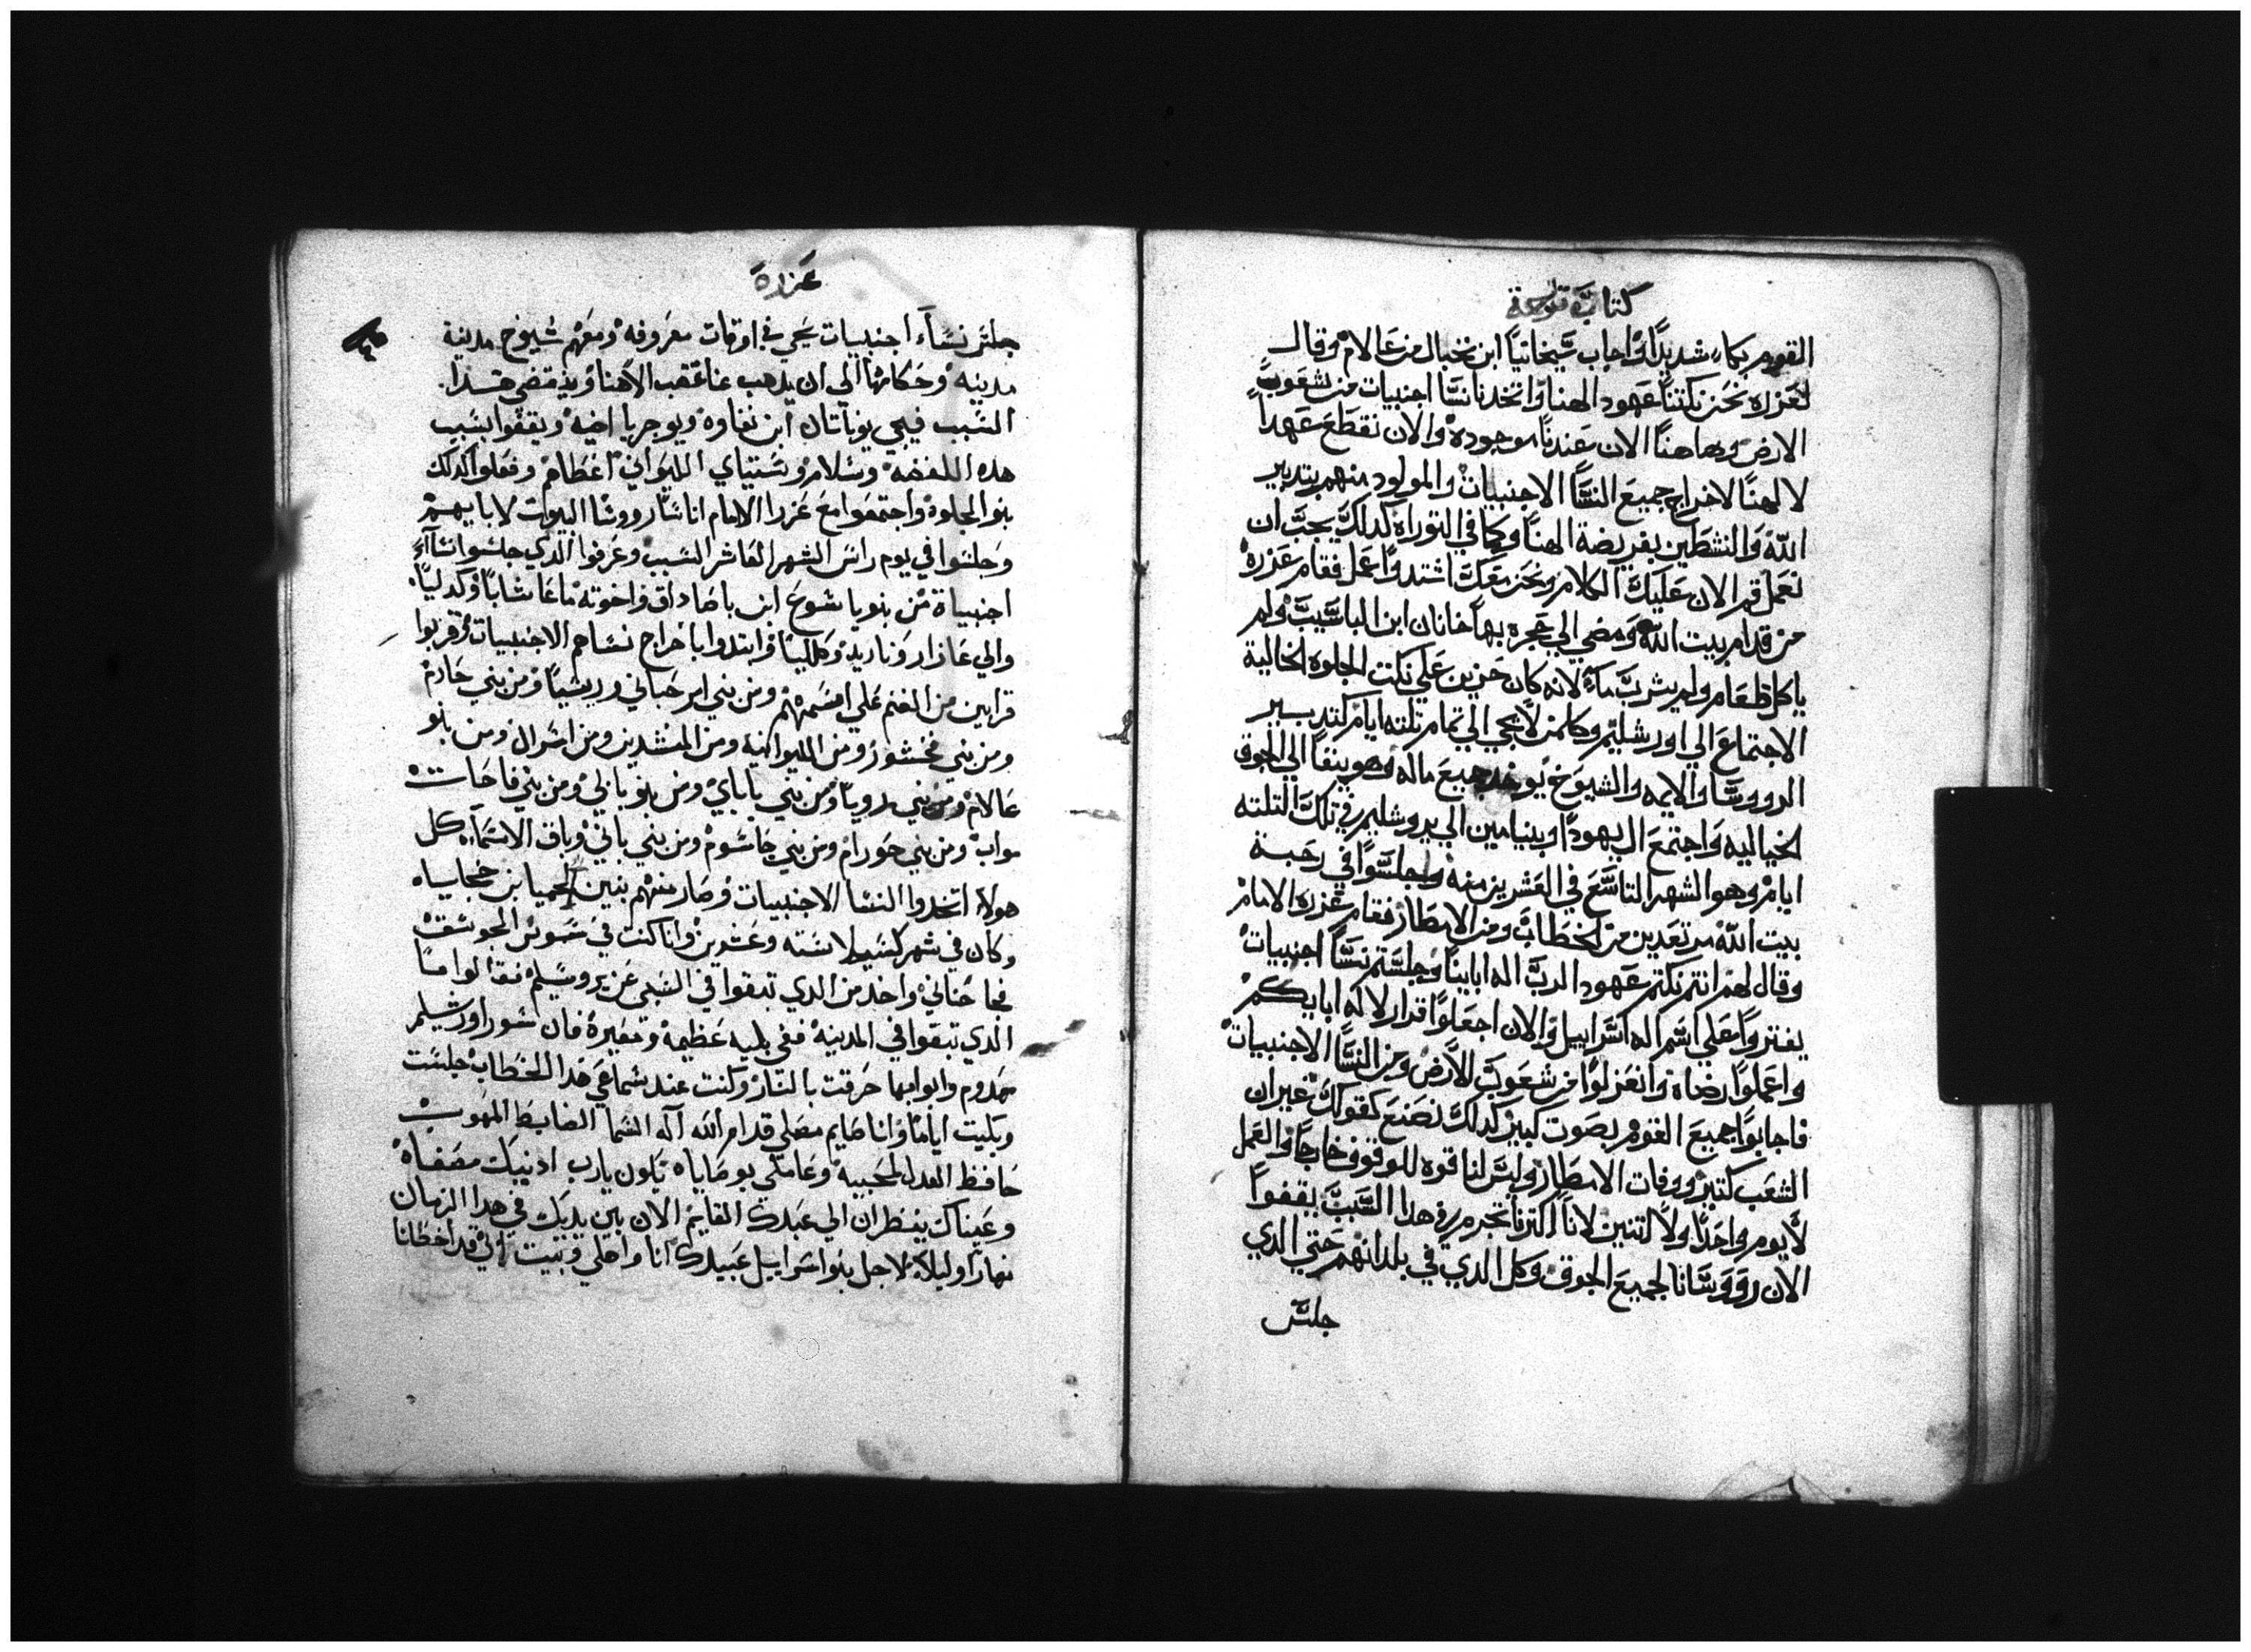 كتاب
القوم بكاء شديدًا واجاب شيخانيا ابن نخيال من عالام وقال
لعزره نحن نكتنا عهود الهنا واتخدنا نسا اجنبيات من شعوب
الارض وهاهنا الان عندنا موجوده والان نقطع عهدا
لالهنا لاخراج جميع النسا الاجنبيات والمولود منهم بتدبير
الله والنشطين بفريضة الهنا وكما في التوراه كدلك يجب ان
نعمل قم الان عليك الكلام ونحن معك اشتد واعمل فقام عزره
من قدام بيت الله ومضي الي حجره يهاخانان ابن الياسيب ولم
ياكل طعام ولم يشرب ماء لانه كان حزين علي نكت الجلوه الخالية
الاجتماع الي اورشليم وكلمن لا يجي الي تمام تلته ايام كتدبير
الرووسا والايمه والشيوخ يوخد جميع ماله وهو ينفا الي الجوق
الخياليه واجتمع ال يهودا وبنيامين الي يروشليم في تلك التلته
ايام وهو الشهر التاسع في العشرين منه واجلسوا في رحبة
بيت الله مرتعدين من الخطاب ومن الامطار فقام عزره الامام
وقال لهم انتم نكتم عهود الرب اله ابايينا وجلستم نسا اجنبيات
يفتروا علي اسم اله اسراييل والان اجعلوا قدار لاله ابايكم
واعملوا رضاه وانعزلوا من شعوب الارض ومن النسا الاجنبيات
فاجابوا جميع القوم بصوت كبير كدلك نصنع كقولك غير ان
الشعب كتير ووفات الامطار وليس لنا قوه للوقوف خارجا والعمل
لا يوم واحدا ولا اتنين لانا اكترنا نجرم في هدا السبب يقفوا
الان رووسانا لجميع الجوق وكل الدي في بلدانهم حتي الدي
جلس
عزره
جلس نساء اجنبيات يجي في اوقات معروفه ومعهم شيوخ مدينة
مدينه وحكامها الي ان يدهب عنا غضب الاهنا وينقضي هدا
السبب فيجي يوناتان ابن نفاوه ويوجريا اخيه ويقفوا بسبب
هده اللفضه وسلام وستياي الليواني اعظام وفعلوا كدلك
بنو الجلوه واجتمعوا مع عزرا الامام اناس ارووسا البيوت لاباييهم
وجلسوا في يوم راس الشهر العاشر السبب وعرفوا الدي جلسوا نساء
اجنبياة من بنو ياشوع ابن ياصاداق واخوته ماعاشايا وكدليا
والي عازار وناريد وكلليا وابتدوا باخراج نساهم الاجنبيات وقربوا
قرابين من الغنم علي اقسمتهم ومن بني اير حباني وريشيا ومن بني حادم
ومن بني فخشور ومن الليوانيه ومن المنشدين ومن اسرال ومن بنو
عالام ومن بني رويا ومن بني باباي ومن بنو باني ومن بني فاحات
مواب ومن بني حورام ومن بني حاشوم ومن بني باني وباق الاسماء كل
هولاء اتخدوا النسا الاجنبيات وصار منهم بنين نحميا بن حجاياه
وكان في شهر كسيلا سنه وعشرين وانا كنت في سوس الجوشق
فجا حناني واحد من الدي تبقوا في السبي عن يروسليم فقالوا ما
الدي تبقوا في المدينة ففي بليه عظيمه ومعيرة فان سور اورشليم
مهدوم وابوابها حرقت بالنار وكنت عند سماعي هدا الخطاب جلست
وبكيت اياما وانا صايم مصلي قدام الله اله السما الضابط المهوب
حافظ العدل لمحبيه وعاملي بوصاياه تكون يارب ادنيك مصغاه
وعيناك ينظران الي عبدك القايم الان بين يديك في هدا الزمان
نهارا وليلا لاجل بنو اسراييل عبيدك انا واهلي وبيت ابي قد اخطانا